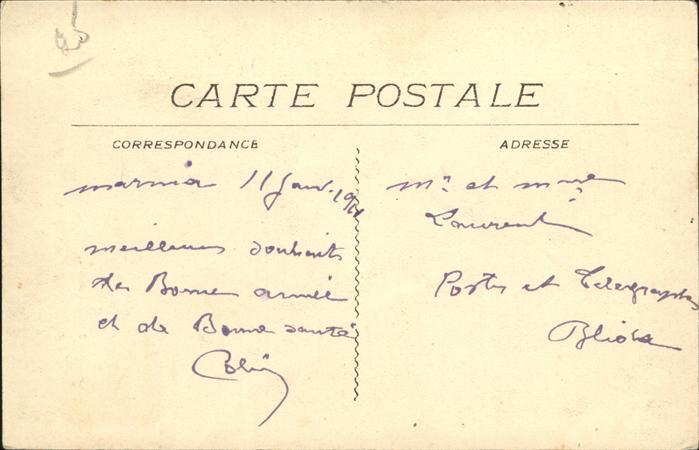 25
CARTE POSTALE
CORRESPONDANCE
ADRESSE
Marnia 11 Janv.
meilleurs souhaits
de Bonne année
et de Bonne santé
Colin
Mr et Mme
Laurent
Postes et Telegraphes
Blida